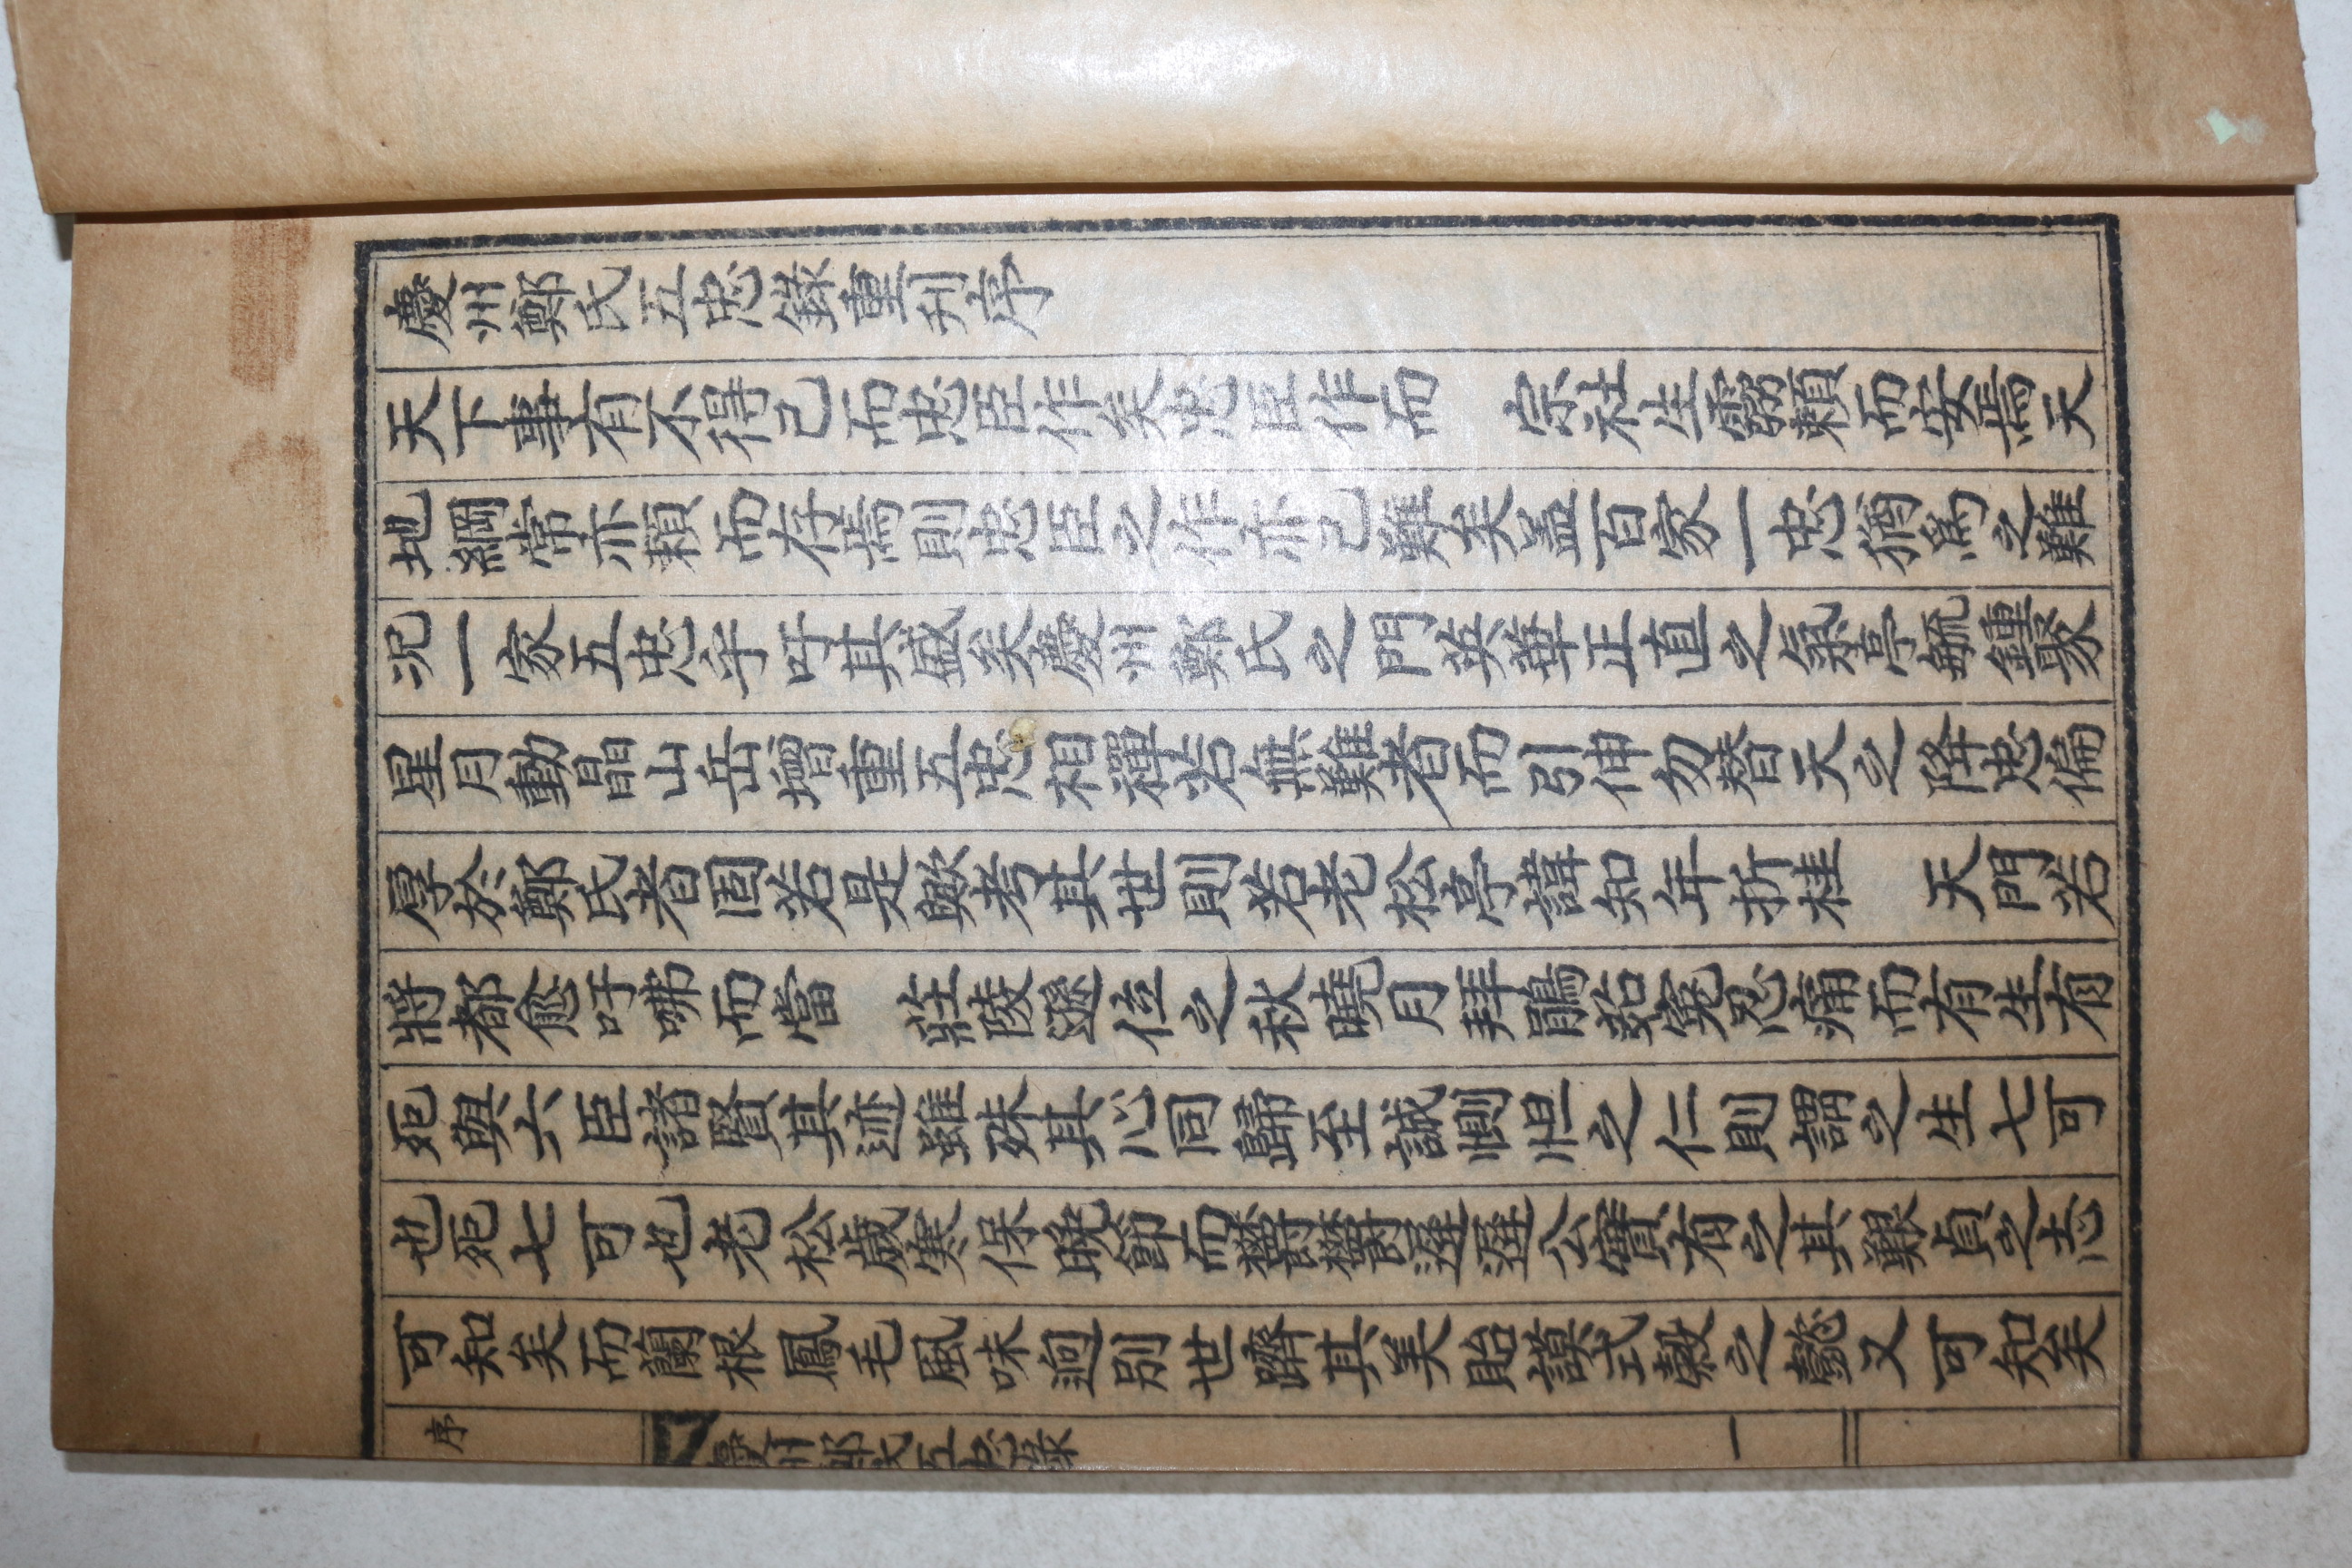 慶州鄭氏五忠錄重刊序
天下事有不得已而忠臣作矣忠臣作而 宗社生靈賴而安焉天
地綱常亦賴而存焉則忠臣之作亦已難矣盖百家一忠猶爲之難
况一家五忠乎吁其盛矣慶州鄭氏之門英華正直之氣亭毓鍾聚
星月動晶山岳增重五忠相禪若無難者而引伸勿替天之降忠偏
厚於鄭氏者固若是歟考其世則若老松亭諱知年折桂 天門若
將都兪吁咈而當 莊陵遜位之秋曉月拜鵑茹寃忍痛而有生有
死與六臣諸賢其迹雖殊其心同歸至誠惻怛之仁則謂之生七可
也死七可也老松歲寒保晩節而鬱鬱遲遲公實有之其艱貞之志
可知矣而蘭根鳳毛風味逈別世躋其美貽謨式穀之懿又可知矣
序 慶州鄭氏五忠錄 一